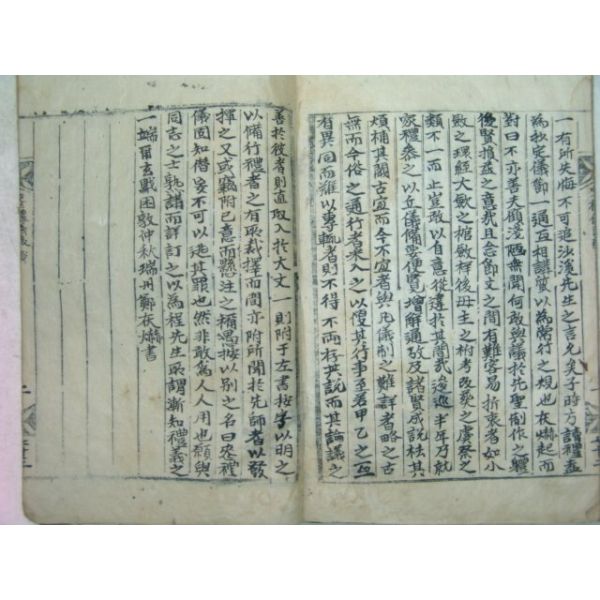 一有所失悔不可追沙溪先生之言允矣子時方讀禮盍
為我定儀節一通互相講質以為常行之規也在爀起而
對曰不亦善夫顧淺陋無聞何敢與議於先聖制作之軆
後賢損益之意哉且念節文之間有難容易折衷者如小
斂之環絰大斂之棺斂祥後母主之祔考改葬之虞祭之
類不一而止寔敢以自意從違於其間哉逡巡半年乃就
家禮叅之以丘儀備要便覽增解通攷及諸賢成說祛其
煩補其闕古宜而今不宜者與凡儀制之難詳者略之古
無而今俗之通行者采入之以便其行事至若甲乙之互
有異同而難以專輒者則不得不兩存其說而其論議之
善於彼者則直取入於大文一則附于左書按字以明之
以備行禮者之有取裁擇而間亦附所聞於先師者以發
揮之又或竊附己意而懸注之稱愚按以別之名曰四禮
儀固知僭妄不可以逃其罪也然非敢為人人用也願與
同志之士孰講而詳訂之以為程先生所謂漸知禮義之
一端爾玄黓困敦仲秋瑞丹鄭在爀書